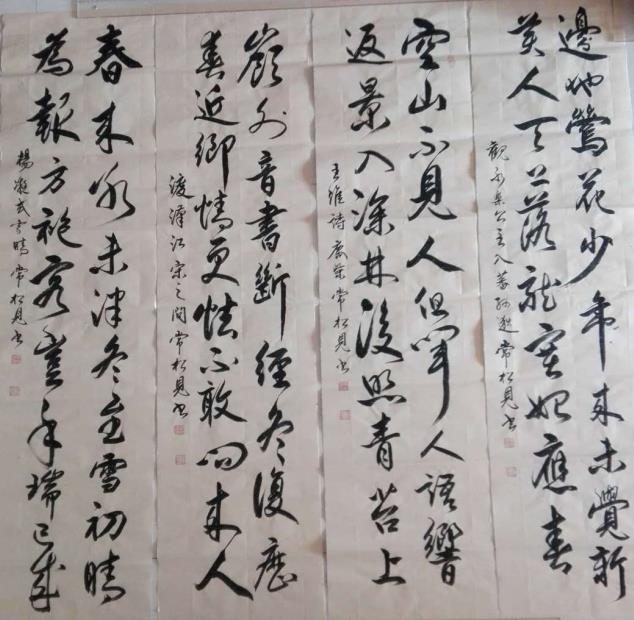 邊地鶯花少年来未覺新
美人天上落龍塞始應春
觀永樂公主入蕃孫逖常松見书
空山不見人但聞人語響
返景入深林復照青苔上
王維詩鹿柴常松見书
嶺外音書斷經冬復歷
春近鄉情更怯不敢問来人
渡漢江宋之問常松見书
春来冰未泮冬至雪初晴
為報方袍客豐年瑞已成
楊凝式雪晴常松見书